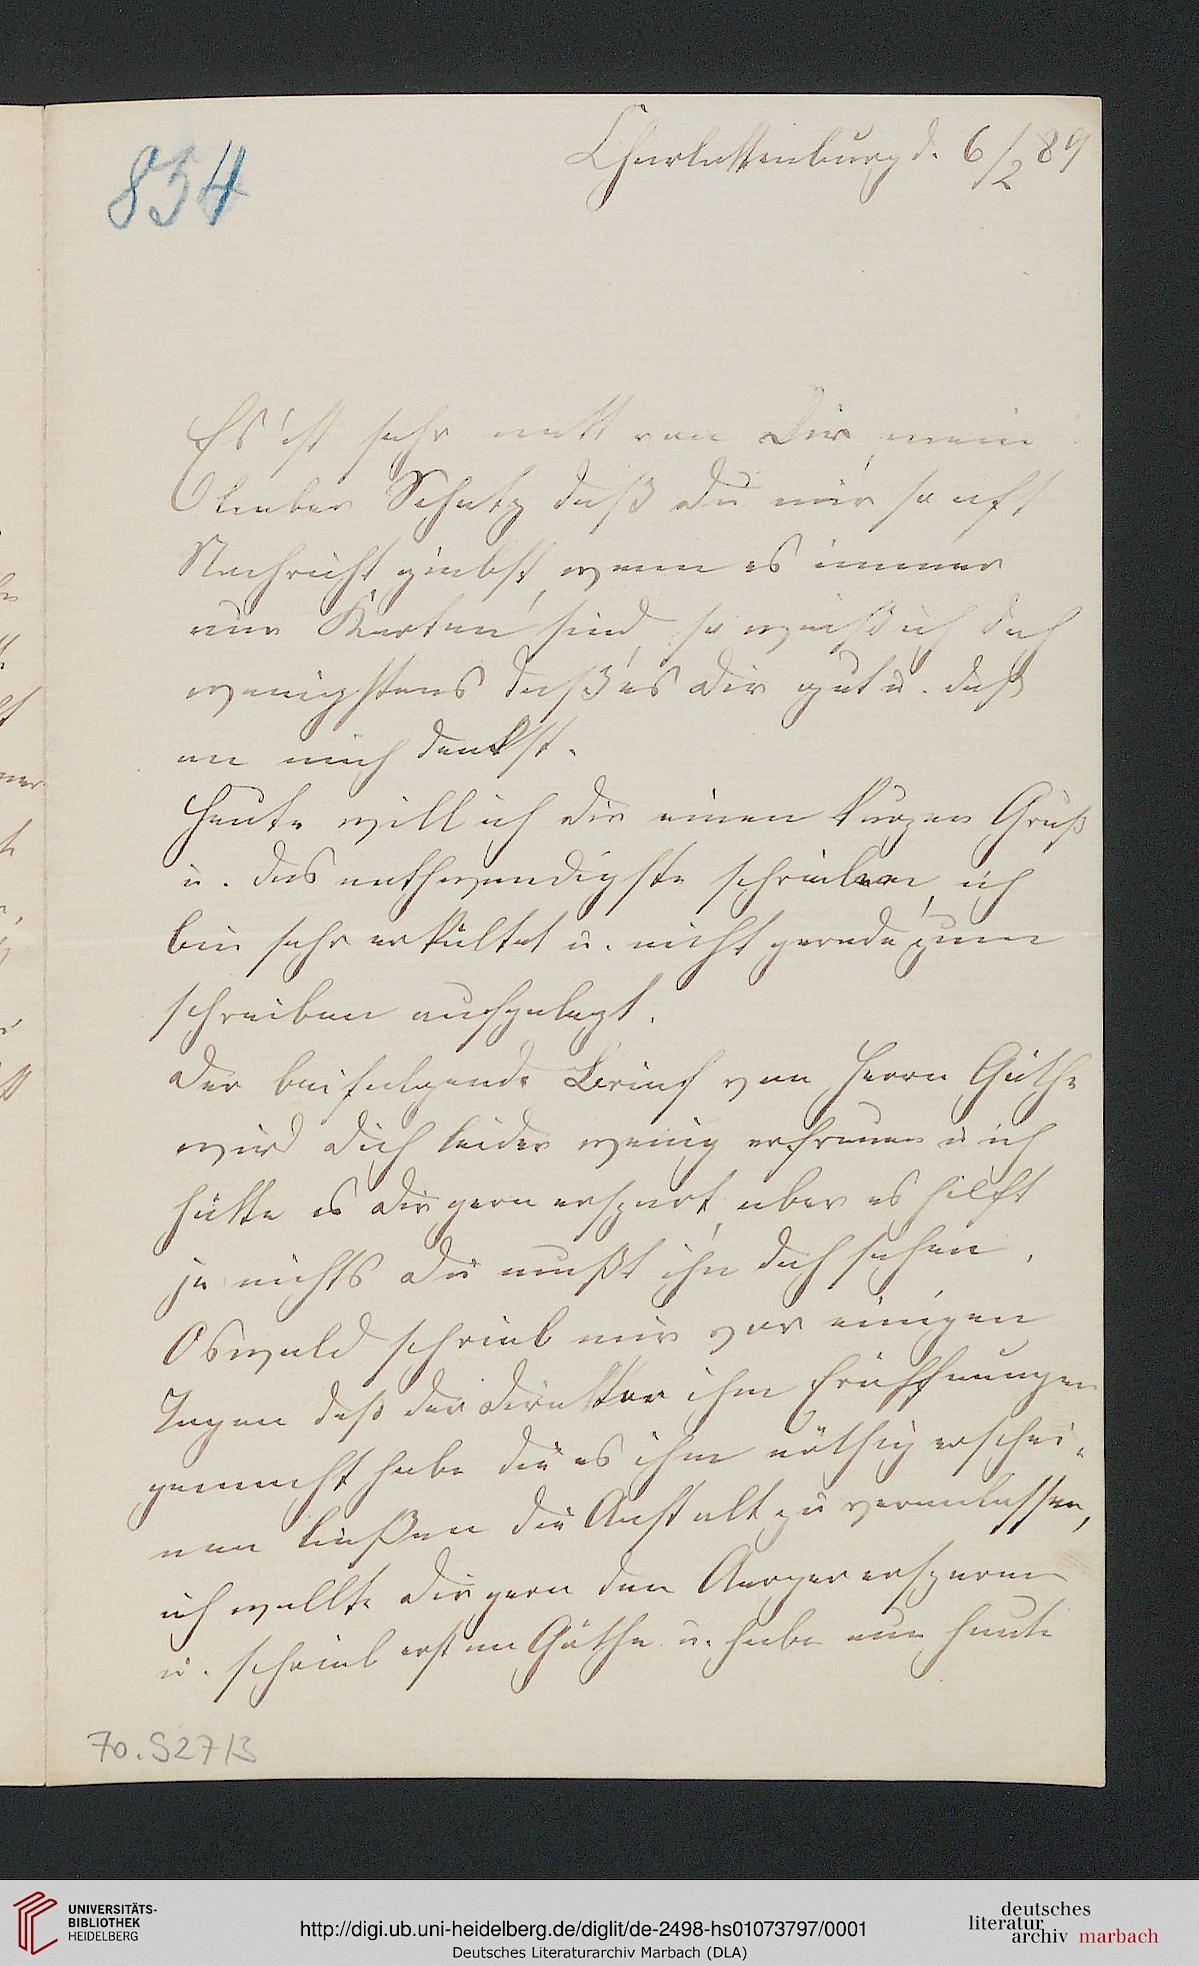 834
Charlottenburg d. 6/2 89
Es ist sehr nett von Dir, mein
lieber Schatz daß Du mir so oft
Nachricht giebst, wenn es immer
nur Karten sind, so weiß ich doch
wenigstens daß es Dir gut u. daß
an mich denkst.
Heute will ich Dir einen kurzen Gruß
u. das nothwendigste schreiben, ich
bin sehr erkältet u. nicht gerade zum
schreiben aufgelegt.
Der beifolgende Brief von Herrn Güthe
wird Dich leider wenig erfreuen u ich
hätte es Dir gern erspart, aber es hilft
ja nichts Du mußt ihn doch sehen.
Oswald schrieb mir vor einigen
Tagen daß der Direktor ihm Eröffnungen
gemacht habe die es ihm nöthig erschei-
nen ließen die Anstalt zu verlassen,
ich wollte Dir gern den Aerger ersparen
u. schrieb erst an Güthe u. habe nun heute
70.S27/3
UNIVERSITÄTS-
BIBLIOTHEK
HEIDELBERG
http://digi.ub.uni-heidelberg.de/diglit/de-2498-hs01073797/0001
Deutsches Literaturarchiv Marbach (DLA)
deutsches
literatur
archiv marbach